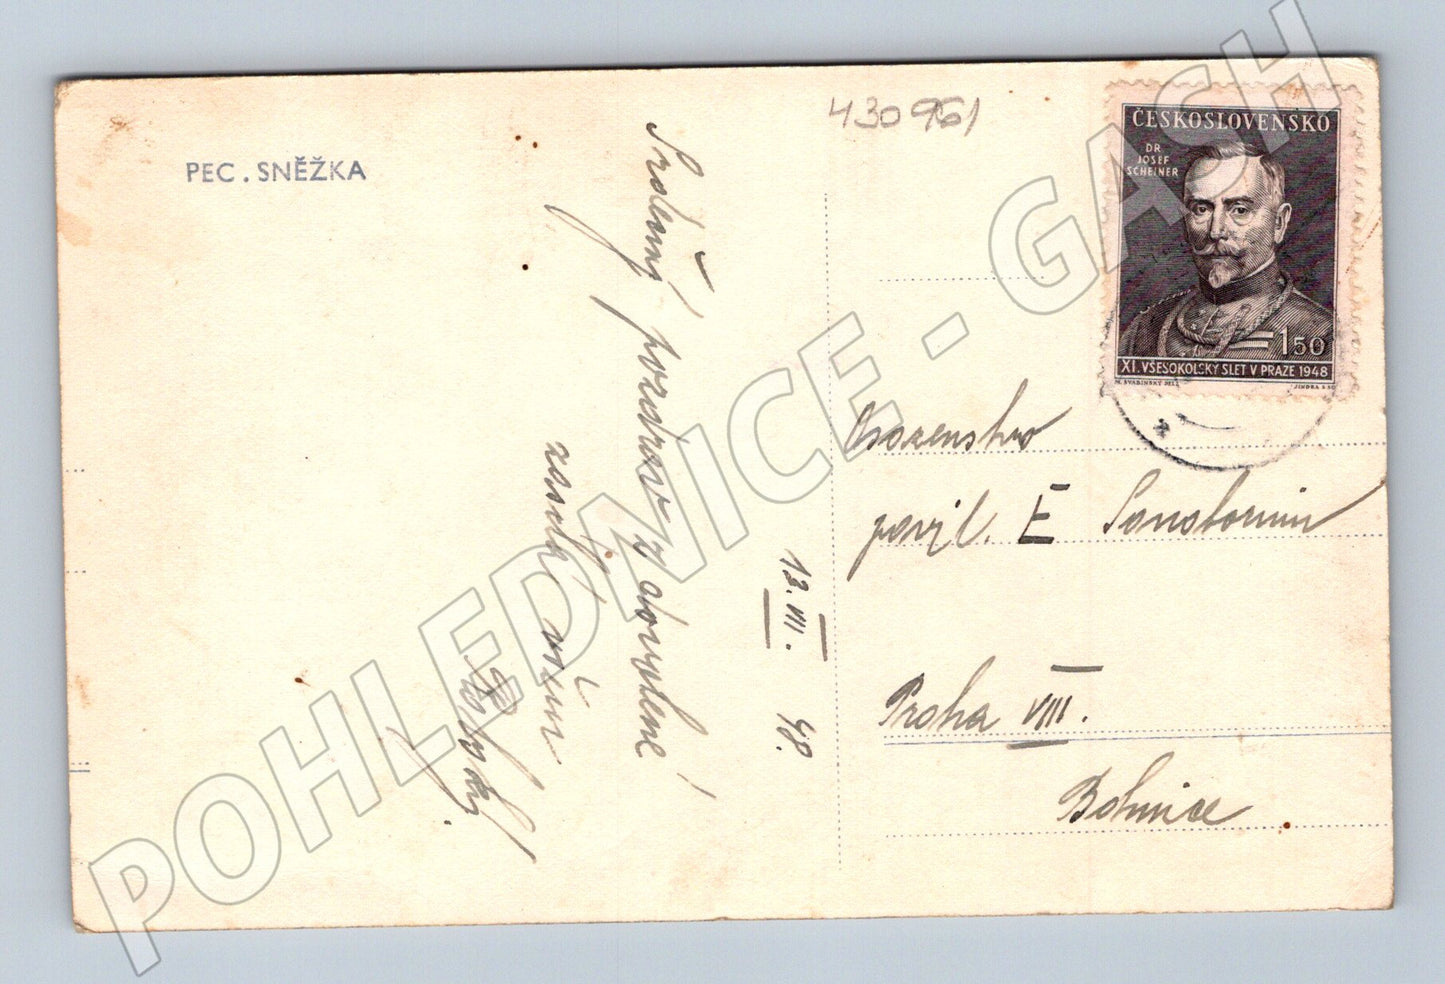 430961
PEC. SNĚŽKA
ČESKOSLOVENSKO
DR
JOSEF
SCHEINER
150
XI. VŠESOKOLSKÝ SLET V PRAZE 1948
M. ŠVABINSKÝ DEL.
JINDRA SC.
Srdečný pozdrav z dovolené
zasílá všem
13. VIII. 48.
Osazenstvo
pavil. E Sanatorium
Praha VIII.
Bohnice
POHLEDNICE - GASH